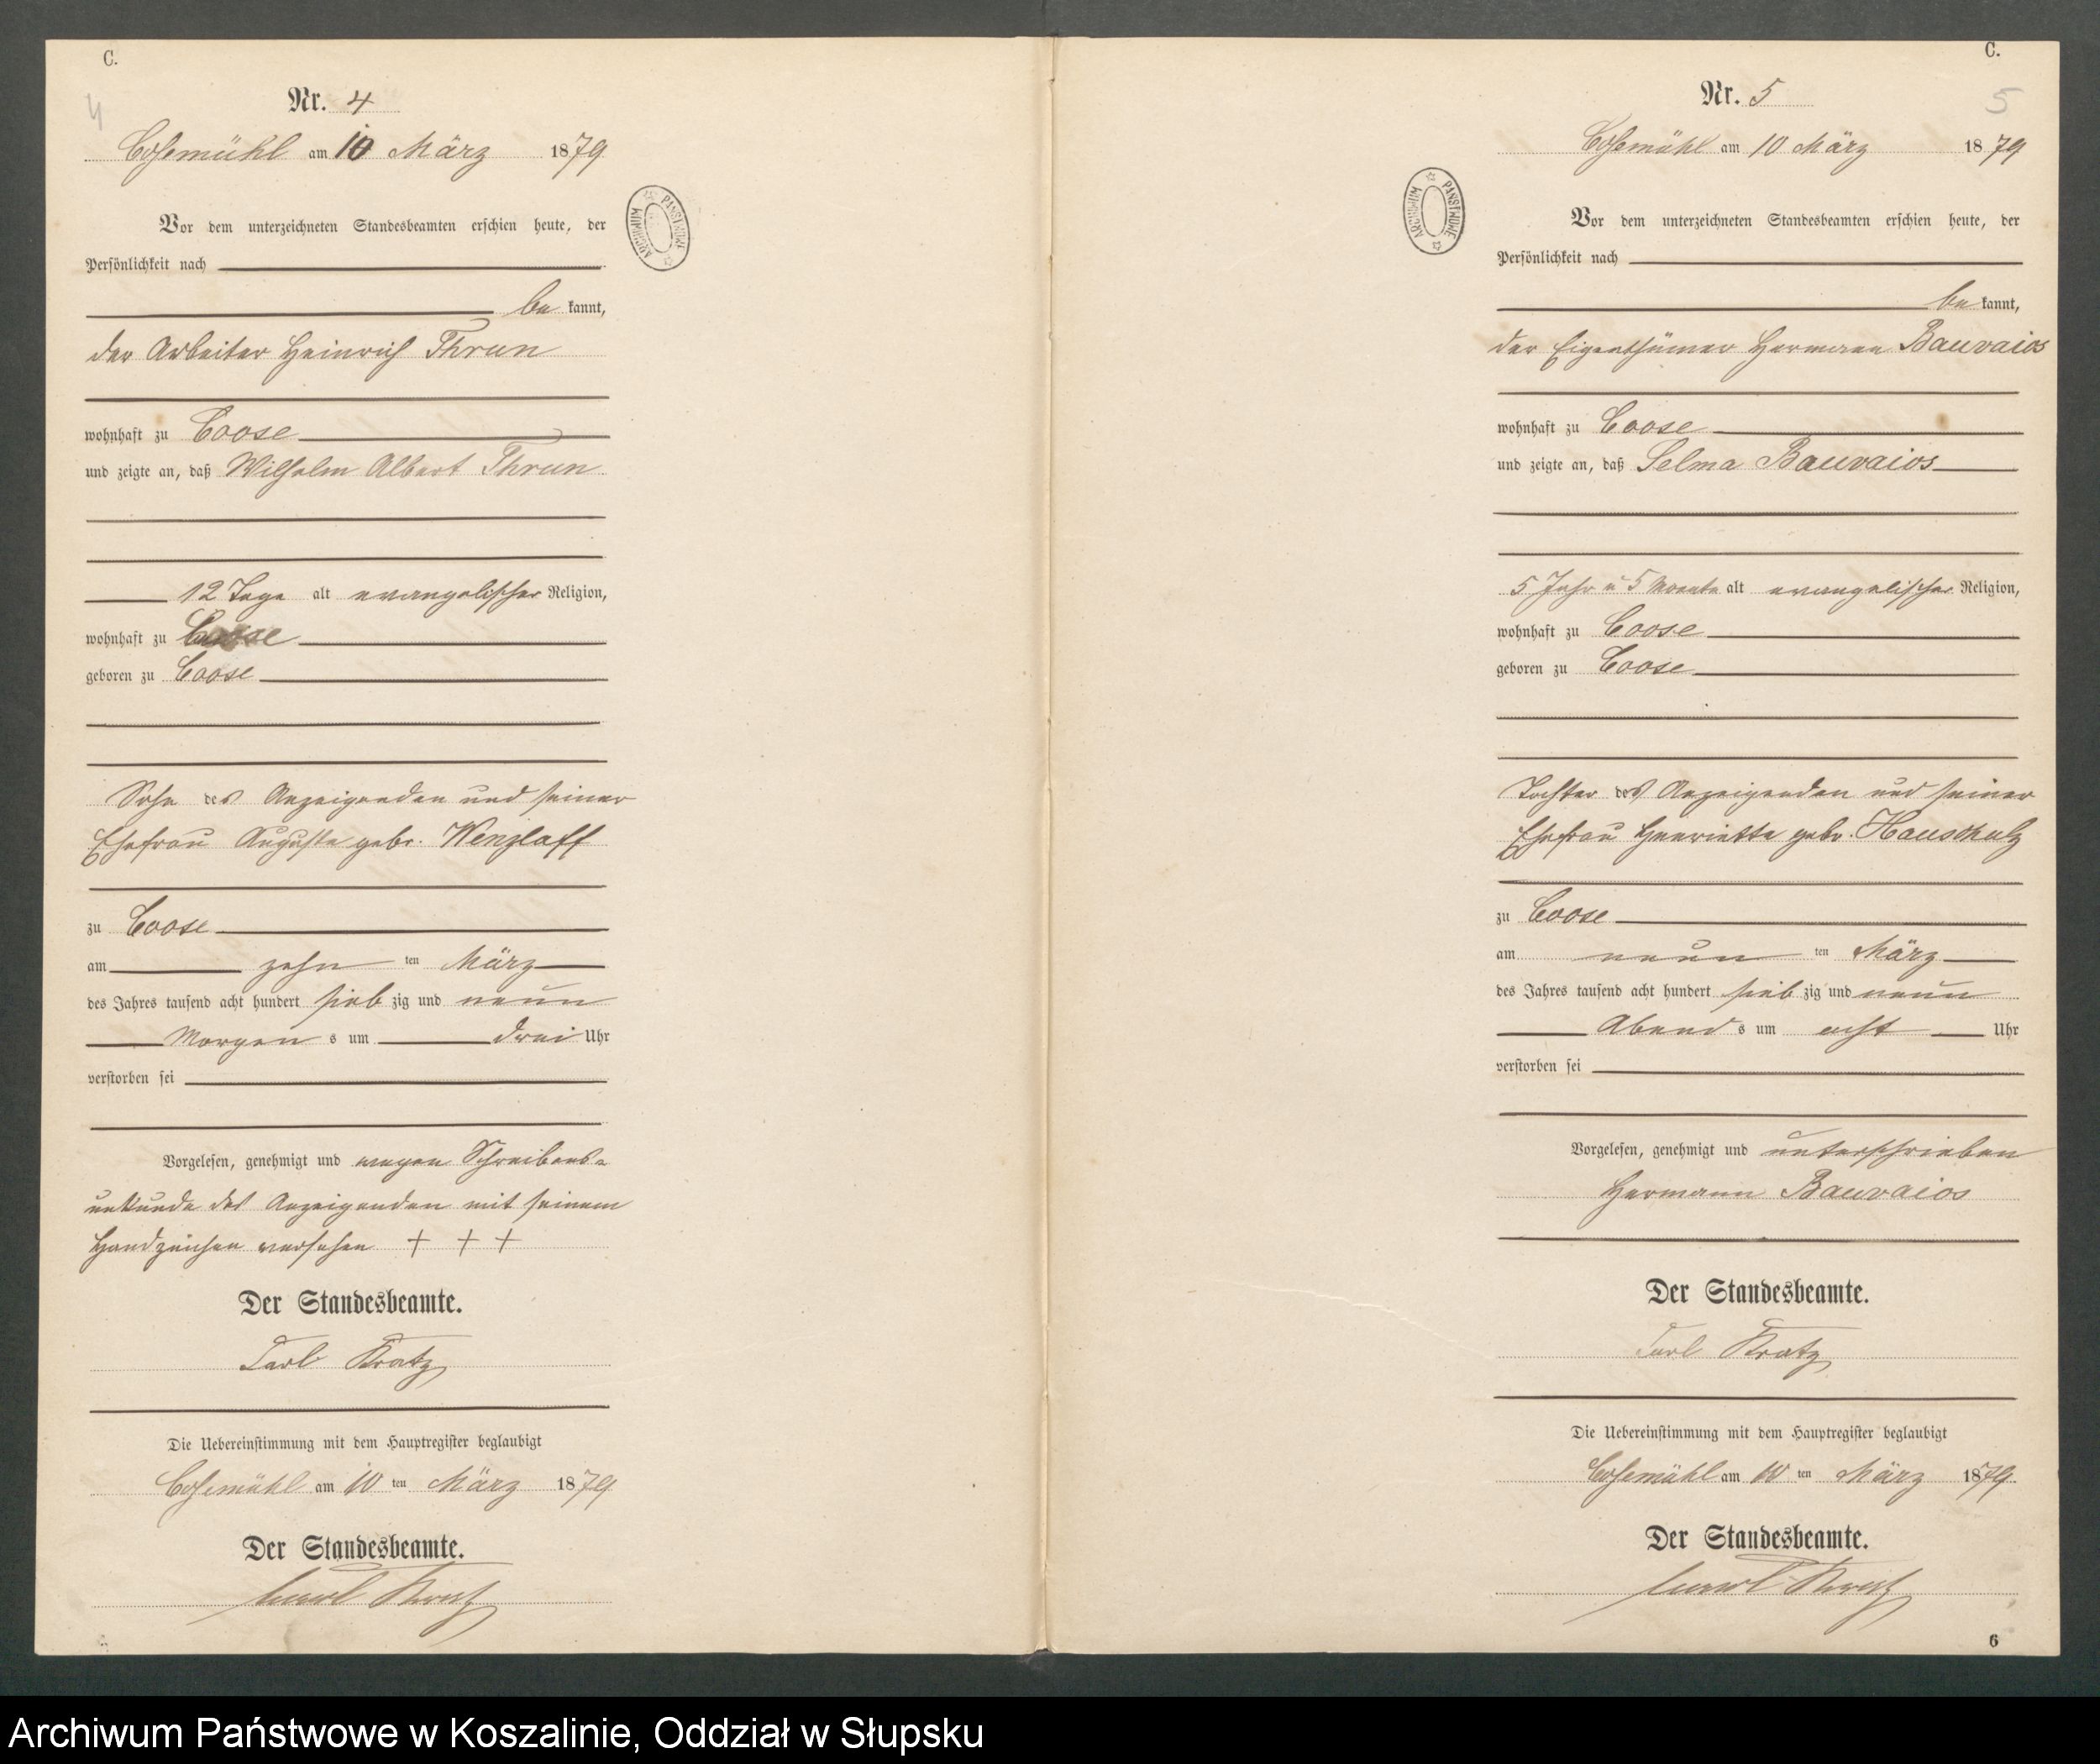 C.
4
Nr. 4
Cosemühl am 10 März 1879
Vor dem unterzeichneten Standesbeamten erschien heute, der
Persönlichkeit nach
be kannt,
der Arbeiter Heinrich Thrun
wohnhaft zu Coose
und zeigte an, daß Wilhelm Albert Thrun
12 Tage alt evangelischer Religion,
wohnhaft zu Coose
geboren zu Coose
Sohn des Anzeigenden und seiner
Ehefrau Auguste gebr. Wenzlaff
zu Coose
am zehn ten März
des Jahres tausend acht hundert sieb zig und neun
Morgen s um drei Uhr
verstorben sei
Vorgelesen, genehmigt und wegen Schreibens-
unkunde des Anzeigenden mit seinem
Handzeichen versehen + + +
Der Standesbeamte.
Carl Kratz
Die Uebereinstimmung mit dem Hauptregister beglaubigt
Cosemühl am 10 ten März 1879
Der Standesbeamte.
Carl Kratz
ARCHIWUM PAŃSTWOWE
C.
5
Nr. 5
Cosemühl am 10 März 1879
Vor dem unterzeichneten Standesbeamten erschien heute, der
Persönlichkeit nach
be kannt,
der Eigenthümer Hermann Bauvaios
wohnhaft zu Coose
und zeigte an, daß Selma Bauvaios
5 Jahr u 5 Monate alt evangelischer Religion,
wohnhaft zu Coose
geboren zu Coose
Tochter des Anzeigenden und seiner
Ehefrau Henriette gebr. Hauschulz
zu Coose
am neun ten März
des Jahres tausend acht hundert sieb zig und neun
Abend s um acht Uhr
verstorben sei
Vorgelesen, genehmigt und unterschrieben
Hermann Bauvaios
Der Standesbeamte.
Carl Kratz
Die Uebereinstimmung mit dem Hauptregister beglaubigt
Cosemühl am 10 ten März 1879
Der Standesbeamte.
Carl Kratz
6
ARCHIWUM PAŃSTWOWE
Archiwum Państwowe w Koszalinie, Oddział w Słupsku